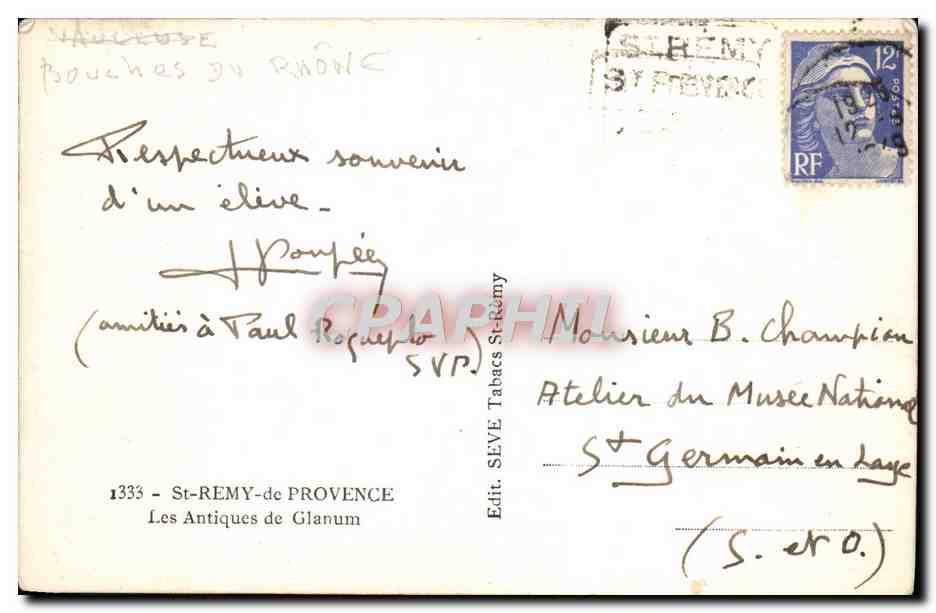 VAUCLUSE
BOUCHES DU RHÔNE
ST REMY
ST PROVENCE
12F
POSTES
RF
Respectueux souvenir
d'un élève_
(amitiés à Paul
SVP.)
CPAPHIL
Monsieur B. Champion
Atelier du Musée National
St Germain en Laye
(S. et O.)
Edit. SEVE Tabacs St-Rémy
1333 - St-REMY-de PROVENCE
Les Antiques de Glanum